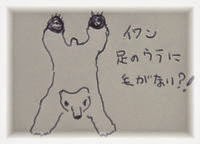 イワン
足のウラに
毛がない?!